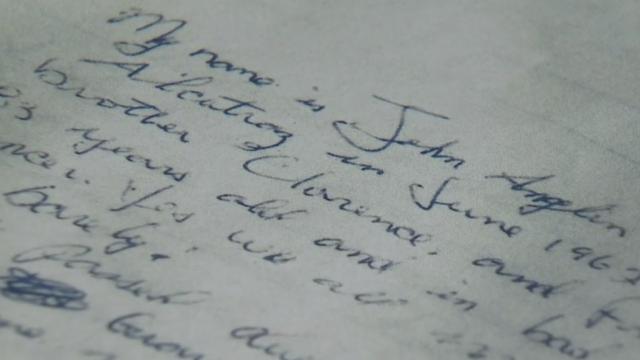 My name is John Anglin
Alcatraz in June 1962
brother Clarence and
83 years old and in bad
Yes we all
barely!
passed